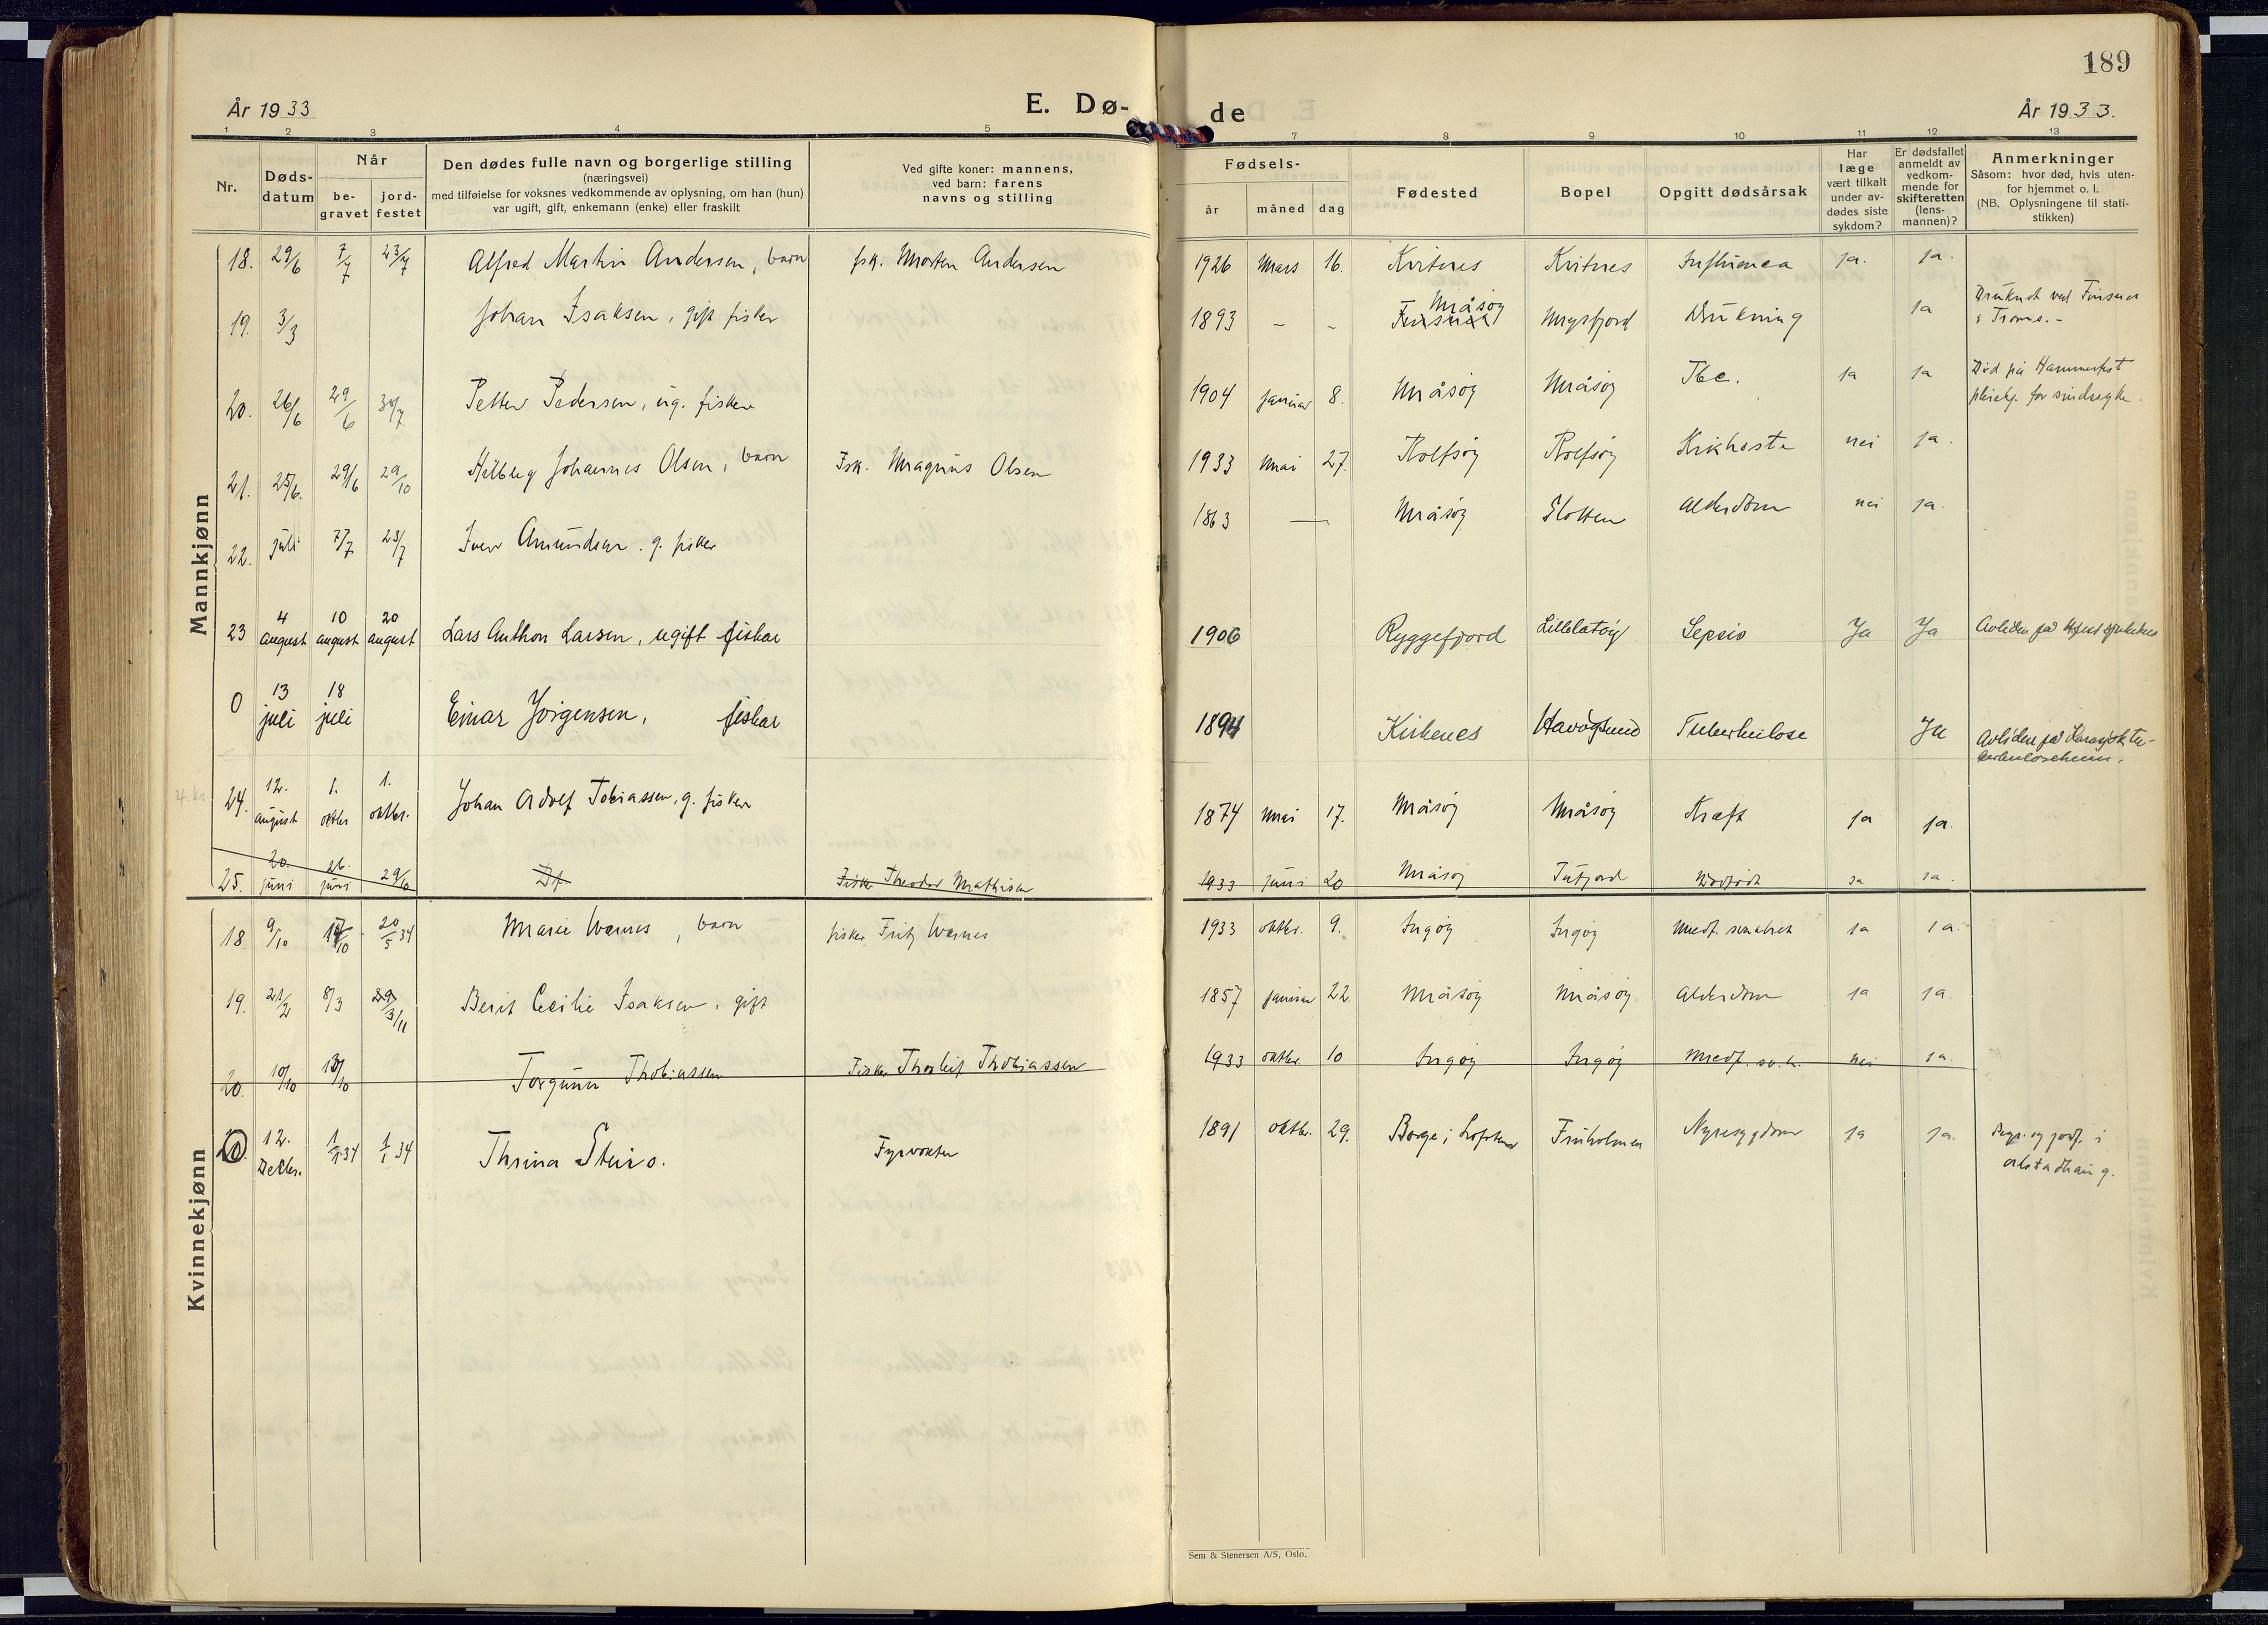 189
År 1933
E. Dø-
de
År 1933.
1 2 3 4 5 7 8 9 10 11 12 13
Nr.
Døds-
datum
Når
be-
gravet
jord-
festet
Den dødes fulle navn og borgerlige stilling
(næringsvei)
med tilføielse for voksnes vedkommende av oplysning, om han (hun)
var ugift, gift, enkemann (enke) eller fraskilt
Ved gifte koner: mannens,
ved barn: farens
navns og stilling
Fødsels-
år
måned
dag
Fødested
Bopel
Opgitt dødsårsak
Har
læge
vært tilkalt
under av-
dødes siste
sykdom?
Er dødsfallet
anmeldt av
vedkom-
mende for
skifteretten
(lens-
mannen)?
Anmerkninger
Såsom: hvor død, hvis uten-
for hjemmet o. l.
(NB. Oplysningene til stati-
stikken)
Mannkjønn
18. 29/6 7/7 23/7 Alfred Martin Andersen, barn fsk. Morten Andersen 1926 Mars 16. Kvitnes Kvitnes Influenca ja. ja.
19. 3/3 Johan Isaksen, gift fisker 1893 - - Finsnes Måsøy Myrfjord Drukning ja Druknet ved Finsnes
i Troms.-
20. 26/6 29/6 30/7 Petter Pedersen, ug. fisker 1904 januar 8. Måsøy Måsøy Tbc. ja ja Død på Hammerfest
pleiehj. for sindssyke.
21. 25/6. 29/6 29/10 Johannes Olsen, barn Fsk. Magnus Olsen 1933 Mai 27. Rolfsøy Rolfsøy Kikhoste nei ja.
22. juli 7/7 23/7 Iver Amundsen. g. fisker 1863 — Måsøy Slotten Alderdom nei ja.
23 4 august 10 august 20 august Lars Anthon Larsen, ugift fiskar 1906 Ryggefjord Lillelatøy Sepsis Ja Ja Avliden på Hfest sjukehus
0 13 juli 18 juli Einar Jørgensen, fiskar 1894 Kirkenes Havøysund Tuberkulose Ja Avliden på Karasjok tu-
berkuloseheim.
24. 12. august 1. oktbr 1. oktbr. Johan Adolf Tobiassen, g. fisker 1874 Mai 17. Måsøy Måsøy Kræft ja ja.
25. 20. juni 26. juni 29/10 Df Fisker Theodor Mathisen 1933 juni 20 Måsøy Tufjord Dødfødt ja ja.
Kvinnekjønn
18. 9/10 17/10 20/5 34 Marie Warnes, barn fisker Fritz Warnes 1933 oktbr. 9. Ingøy Ingøy Medf. svakhet ja ja.
19. 21/2 8/3 Berit Cecilie Isaksen, gift 1857 januar 22. Måsøy Måsøy Alderdom ja ja.
20. 10/10 13/10 Torgunn Thobiassen Fisker Thorleif Thobiassen 1933 oktbr. 10 Ingøy Ingøy Medf. sv.h. nei ja.
20. 12. Decbr. 1/1 34 1/1 34 Thrina Steiro. Fyrvokter 1891 oktbr. 29. Borge i Lofoten Fruholmen Nyresygdom ja ja. Begr. og jordf. i
Alstadhaug.
Sem & Stenersen A/S, Oslo.